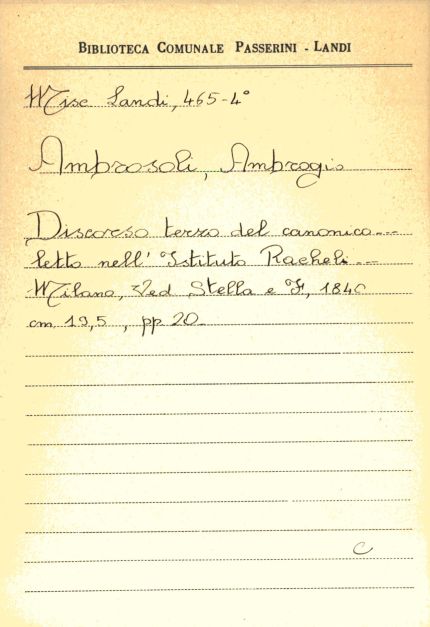 BIBLIOTECA COMUNALE PASSERINI - LANDI
Misc. Landi, 465-4°
Ambrosoli, Ambrogio
Discorso terzo del canonico...
letto nell' Istituto Racheli...
Milano, Ved Stella e F, 1846
cm 19,5, pp 20.
C